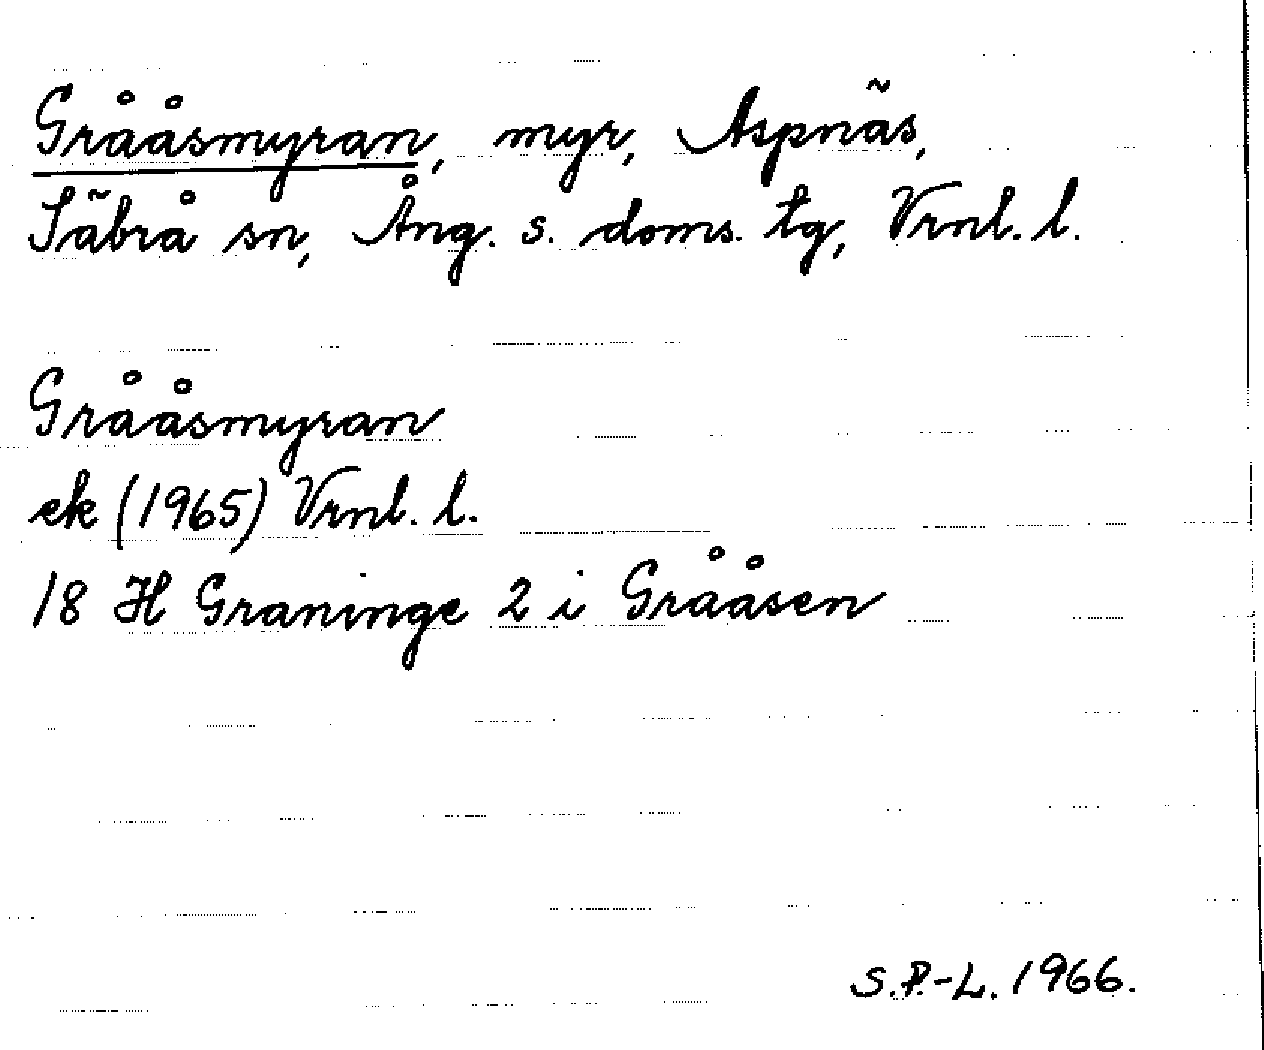 Grååsmyran, myr, Aspnäs,
Säbrå sn, Ång. s. doms. tg, Vrnl. l.
Grååsmyran
ek (1965) Vrnl. l.
18 H Graninge 2 i Grååsen
S.P.-L. 1966.